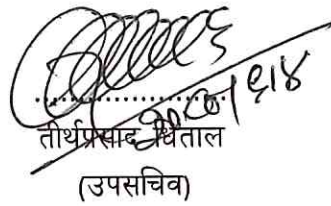 ....................
तीर्थप्रसाद धिताल
(उपसचिव)